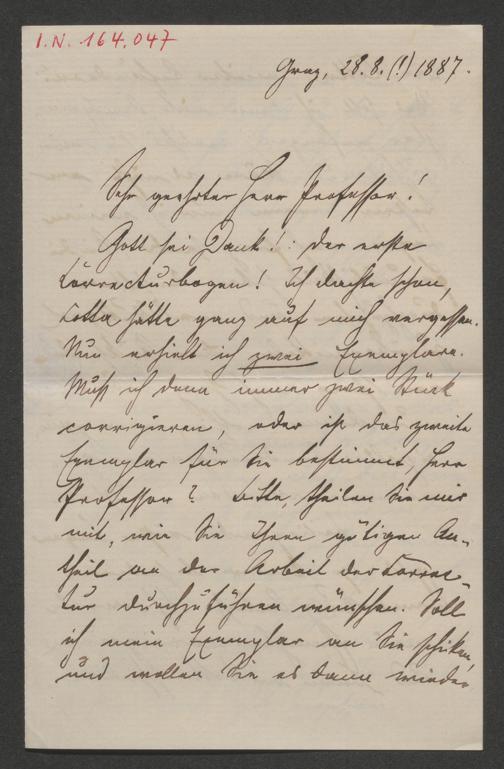 I.N. 164.047
Graz, 28.8.(!) 1887.
Sehr geehrter Herr Professor!
Gott sei Dank!: der erste
Correcturbogen! Ich dachte schon,
Cotta hätte ganz auf mich vergessen.
Nun erhielt ich zwei Exemplare.
Muß ich denn immer zwei Stück
corrigieren, oder ist das zweite
Exemplar für Sie bestimmt, Herr
Professor? Bitte, theilen Sie mir
mit, wie Sie Ihren gütigen An-
theil an der Arbeit der Correc-
tur durchzuführen wünschen. Soll
ich mein Exemplar an Sie schicken,
und wollen Sie es dann wieder